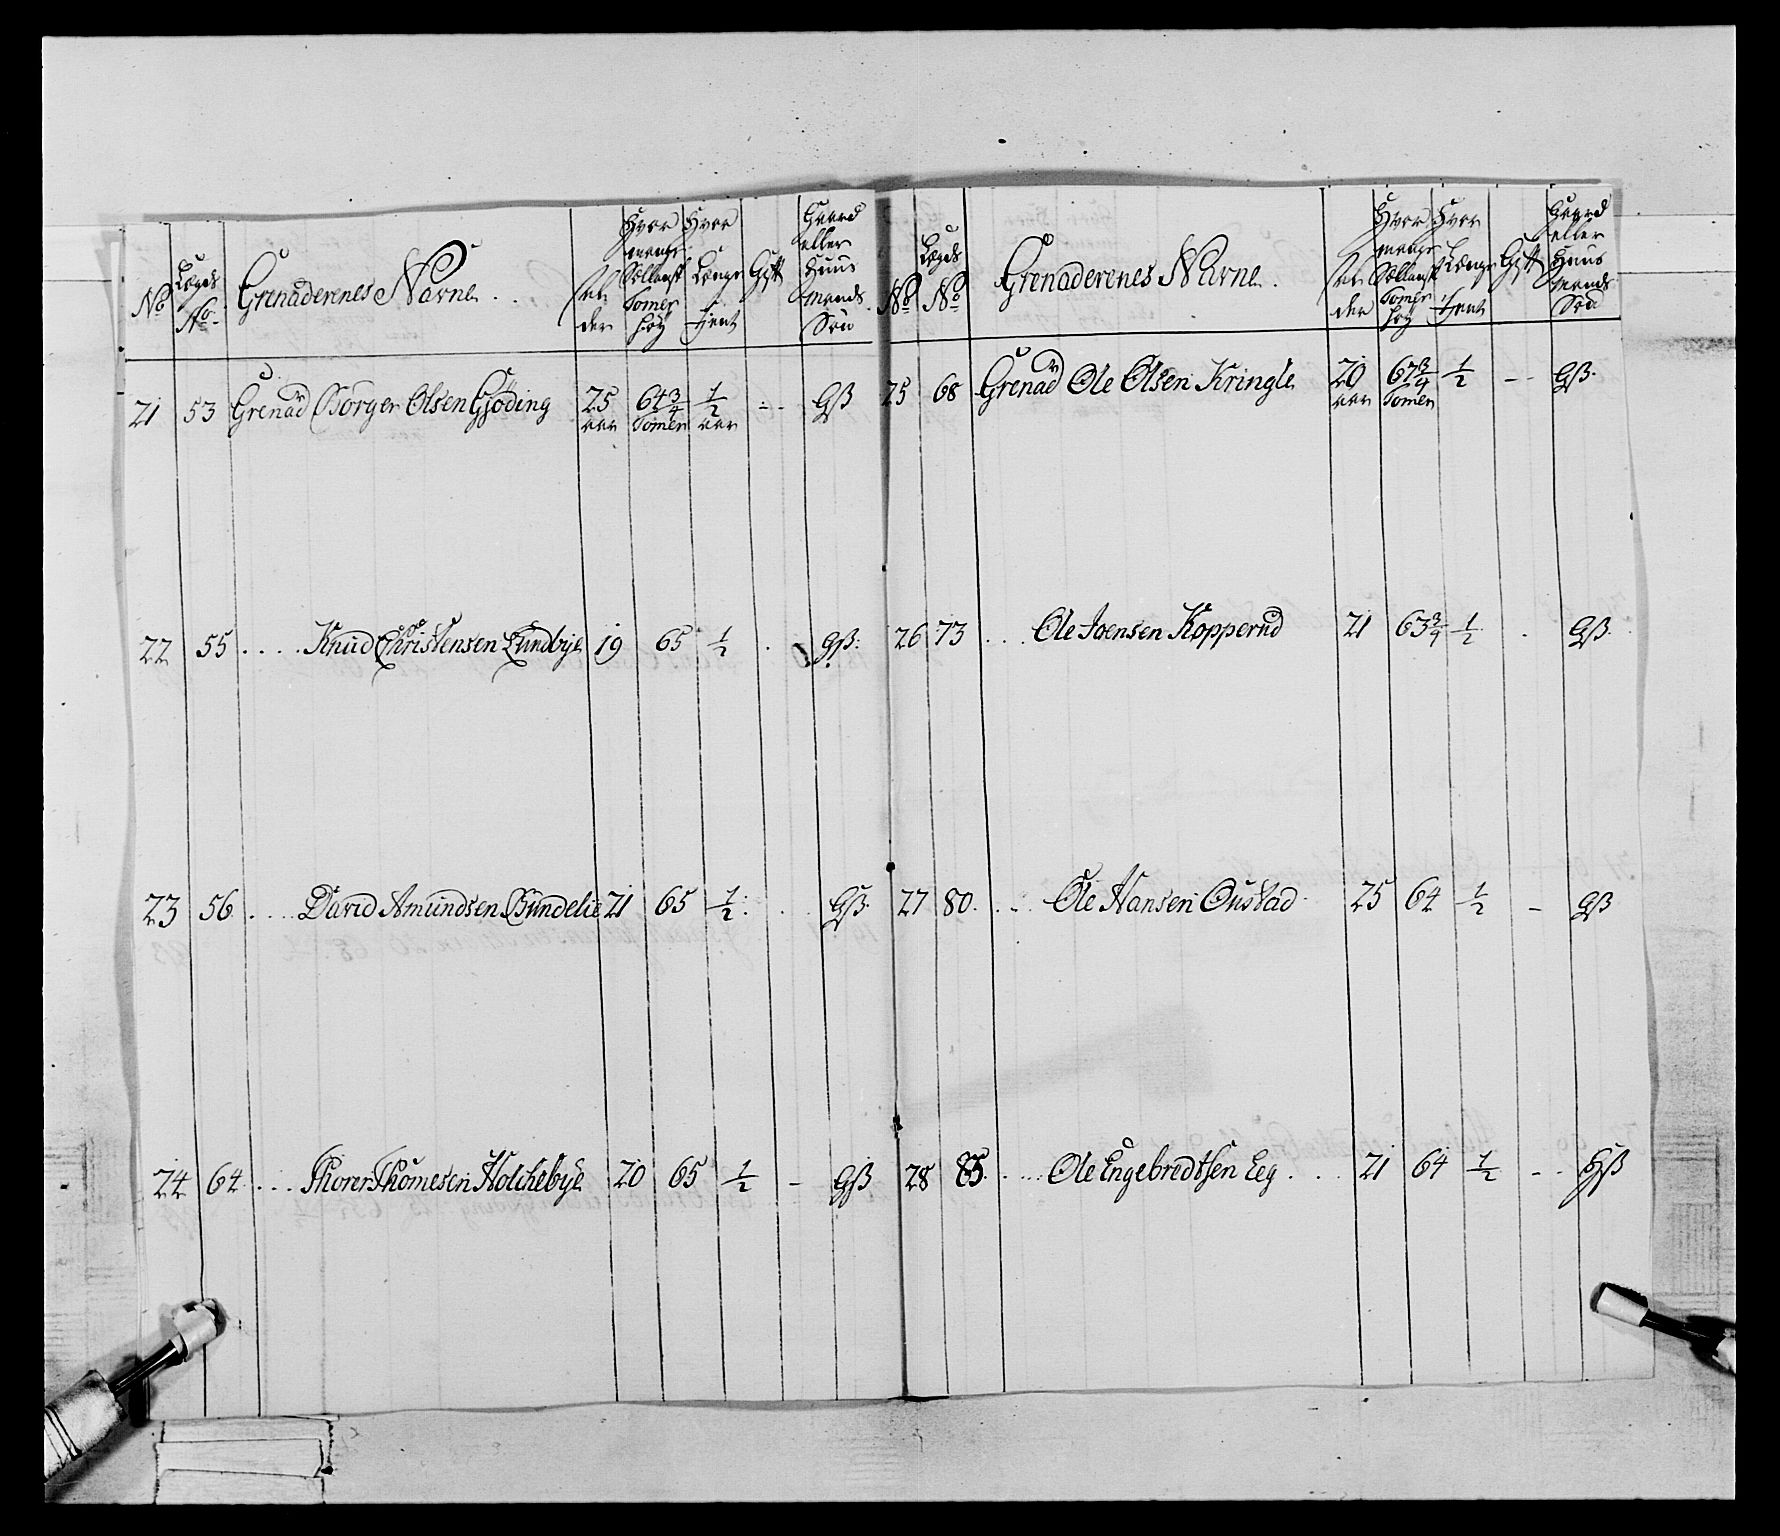 No
Lægds No
Grenaderenes Navne
Alder
Hvor mange Sællansk Tomer høÿ
Hvor Længe Tient
Gift
Gaard eller Huusmands Søn
21 53 Grenadr Börger Olsen Gjöding 25 aar 64 3/4 Tomer 1/2 aar - - Gß
22 55 .... Knud Christensen Lundbye 19 65 1/2 . Gß:
23 56 .... David Amundsen Bundelie 21 65 1/2 . Gß.
24 64 .... Thorer Thomesen Holchebye 20 65 1/2 - Gß
No
Lægds No
Grenaderenes Navne.
Alder
Hvor mange Sællansk Tomer høÿ
Hvor Længe Tient
Gift
Gaard eller Huusmands Søn
25 68 Grenadr Ole Olsen Kringle 20 aar 67 3/4 Tomer 1/2 -- Gß.
26 73 ... Ole Joensen Kopperud 21 63 3/4 1/2 . Gß.
27 80. ... Ole Hansen Oustad 25 64 1/2 - Gß
28 85. .... Ole Engebredtsen Eeg ... 21 64 1/2 -- Hß